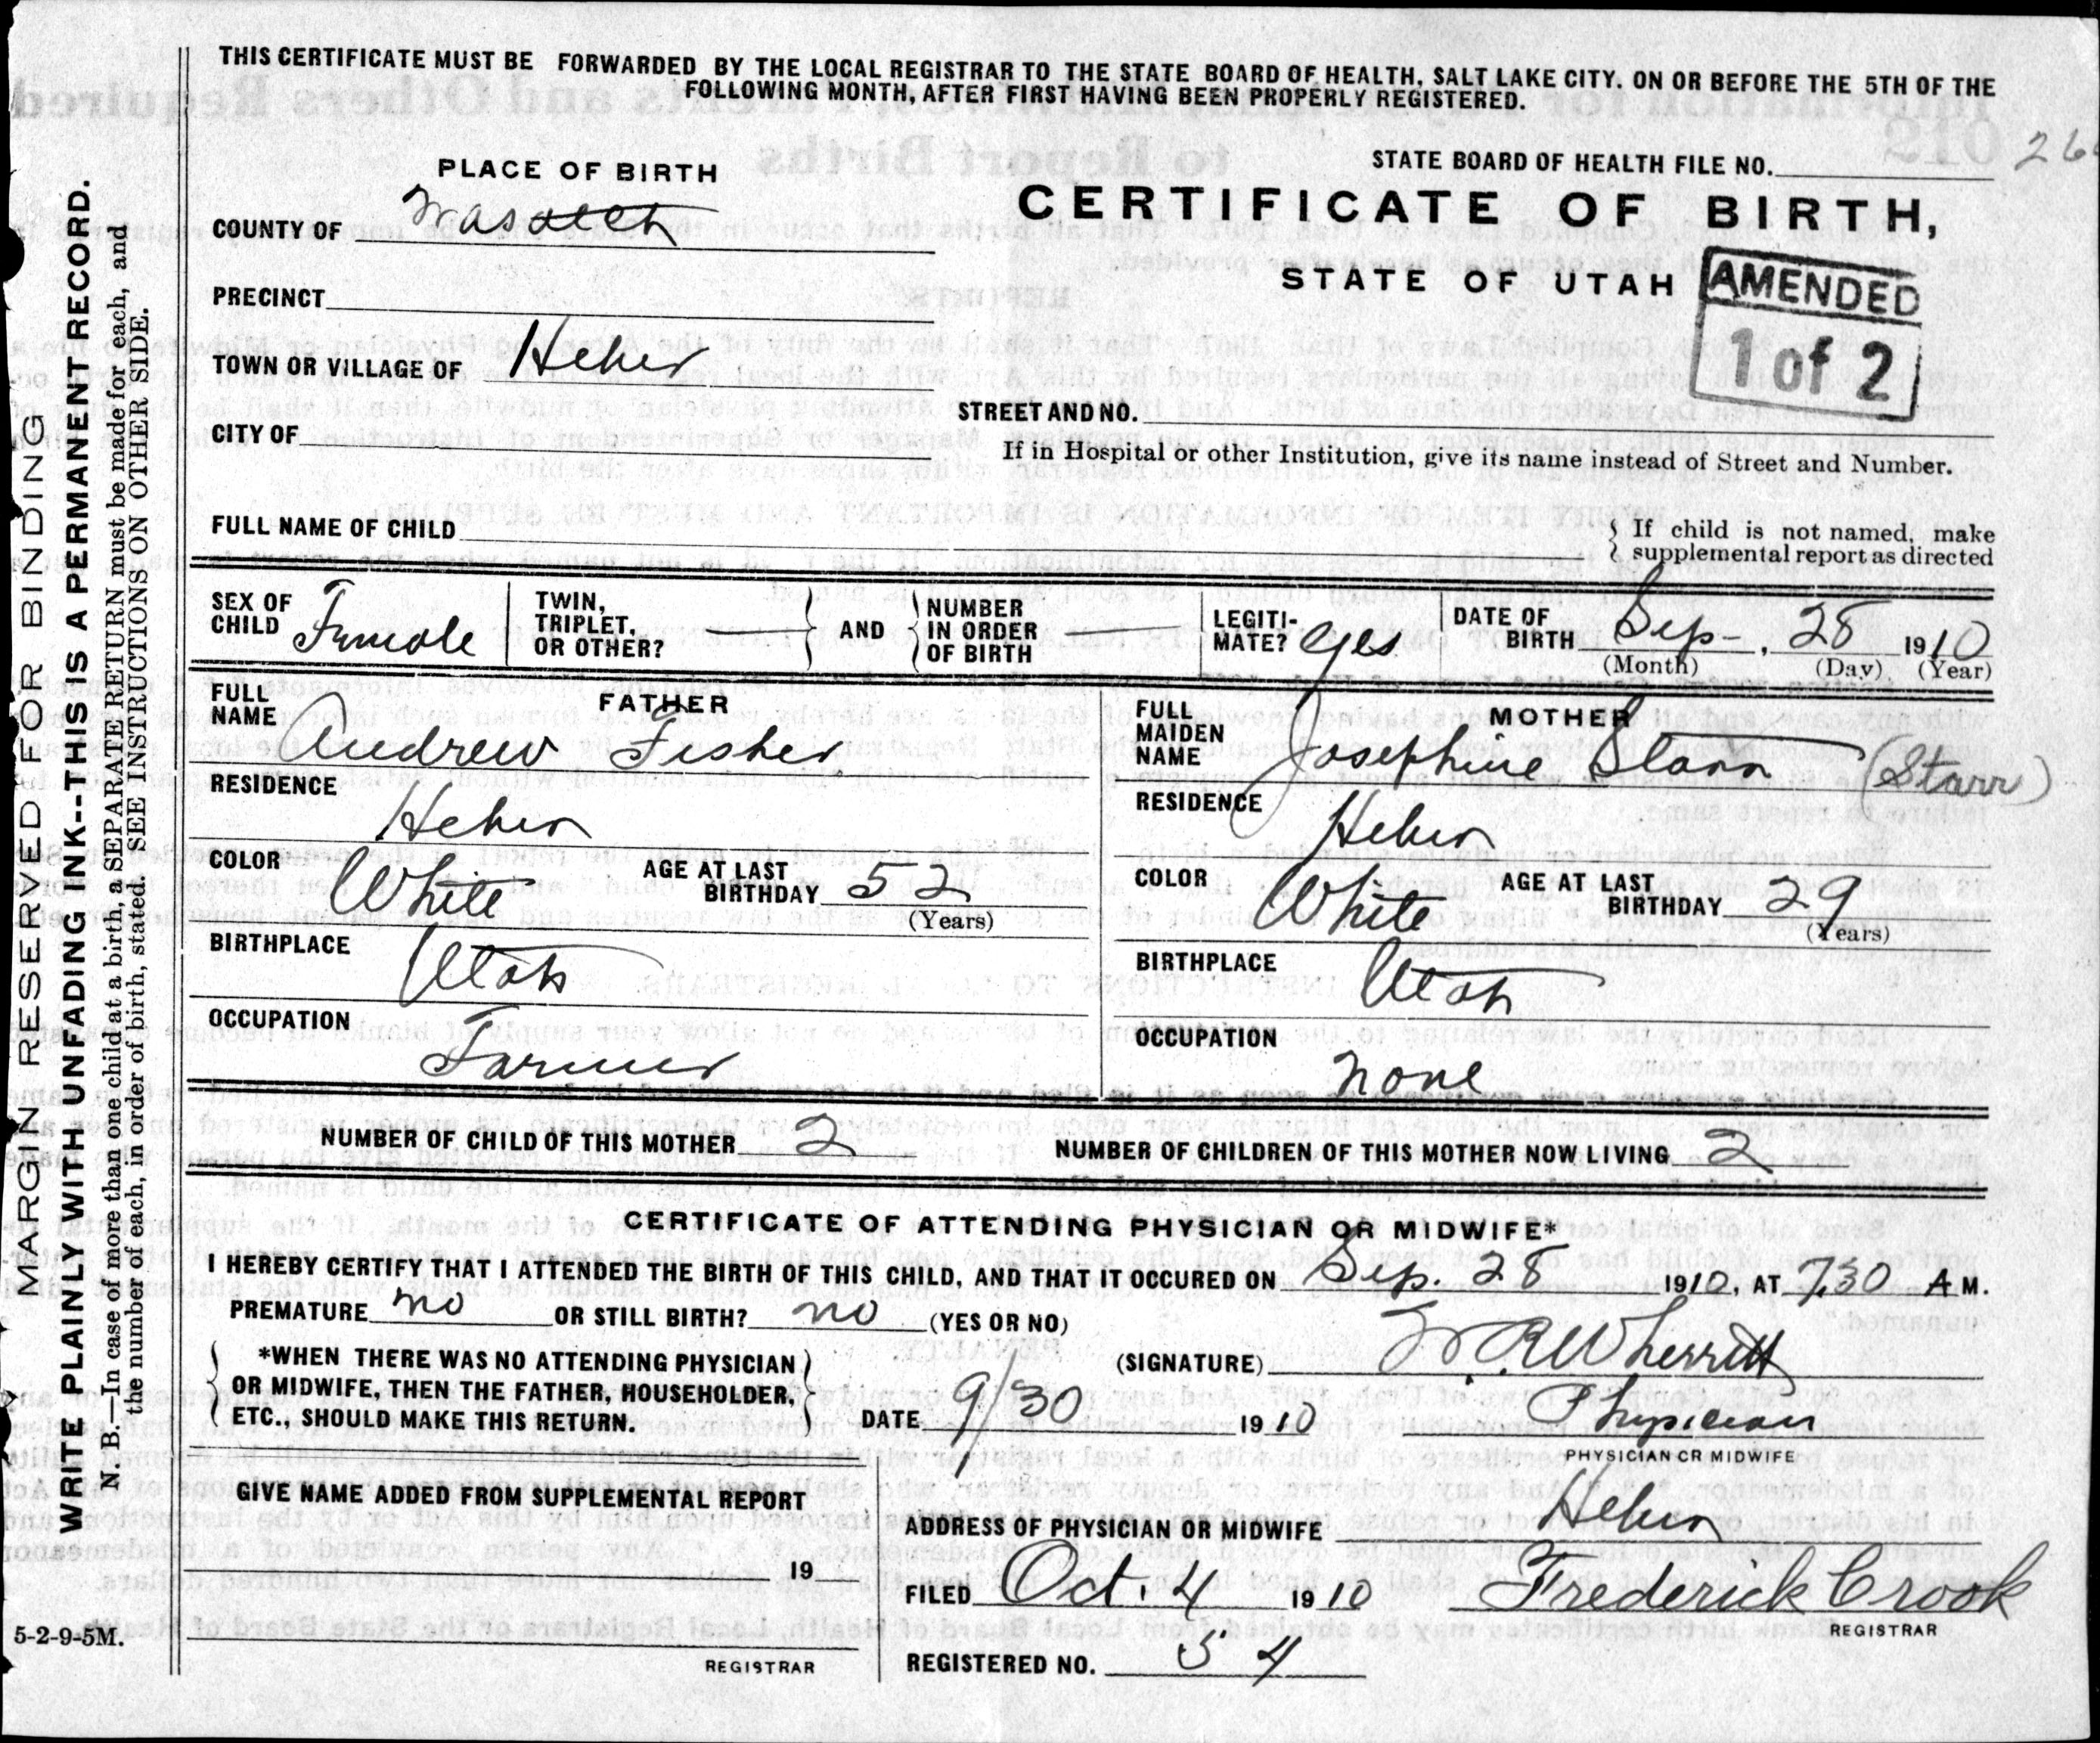 THIS CERTIFICATE MUST BE FORWARDED BY THE LOCAL REGISTRAR TO THE STATE BOARD OF HEALTH, SALT LAKE CITY. ON OR BEFORE THE 5TH OF THE
FOLLOWING MONTH, AFTER FIRST HAVING BEEN PROPERLY REGISTERED.
STATE BOARD OF HEALTH FILE NO.
PLACE OF BIRTH
COUNTY OF Wasatch
CERTIFICATE OF BIRTH,
STATE OF UTAH
AMENDED
1 of 2
PRECINCT
TOWN OR VILLAGE OF Heber
STREET AND NO.
CITY OF
If in Hospital or other Institution, give its name instead of Street and Number.
FULL NAME OF CHILD
If child is not named, make
supplemental report as directed
SEX OF
CHILD Female
TWIN,
TRIPLET,
OR OTHER?
AND
NUMBER
IN ORDER
OF BIRTH
LEGITI-
MATE? yes
DATE OF
BIRTH Sep-, 28 1910
(Month) (Day) (Year)
FATHER
FULL
NAME Andrew Fisher
RESIDENCE
Heber
COLOR White
AGE AT LAST
BIRTHDAY 52
(Years)
BIRTHPLACE
Utah
OCCUPATION
Farmer
MOTHER
FULL
MAIDEN
NAME Josephine Starr (Starr)
RESIDENCE
Heber
COLOR White
AGE AT LAST
BIRTHDAY 29
(Years)
BIRTHPLACE
Utah
OCCUPATION
none
NUMBER OF CHILD OF THIS MOTHER 2
NUMBER OF CHILDREN OF THIS MOTHER NOW LIVING 2
CERTIFICATE OF ATTENDING PHYSICIAN OR MIDWIFE*
I HEREBY CERTIFY THAT I ATTENDED THE BIRTH OF THIS CHILD, AND THAT IT OCCURED ON Sep. 28 1910, AT 7,30 A M.
PREMATURE no OR STILL BIRTH? no (YES OR NO)
*WHEN THERE WAS NO ATTENDING PHYSICIAN
OR MIDWIFE, THEN THE FATHER, HOUSEHOLDER,
ETC., SHOULD MAKE THIS RETURN.
(SIGNATURE) W. R. Wherritt
DATE 9/30 1910
Physician
PHYSICIAN OR MIDWIFE
GIVE NAME ADDED FROM SUPPLEMENTAL REPORT
19
REGISTRAR
ADDRESS OF PHYSICIAN OR MIDWIFE Heber
FILED Oct. 4 1910 Frederick Crook
REGISTRAR
REGISTERED NO. 54
MARGIN RESERVED FOR BINDING
WRITE PLAINLY WITH UNFADING INK--THIS IS A PERMANENT RECORD.
N. B.—In case of more than one child at a birth, a SEPARATE RETURN must be made for each, and
the number of each, in order of birth, stated. SEE INSTRUCTIONS ON OTHER SIDE.
5-2-9-5M.